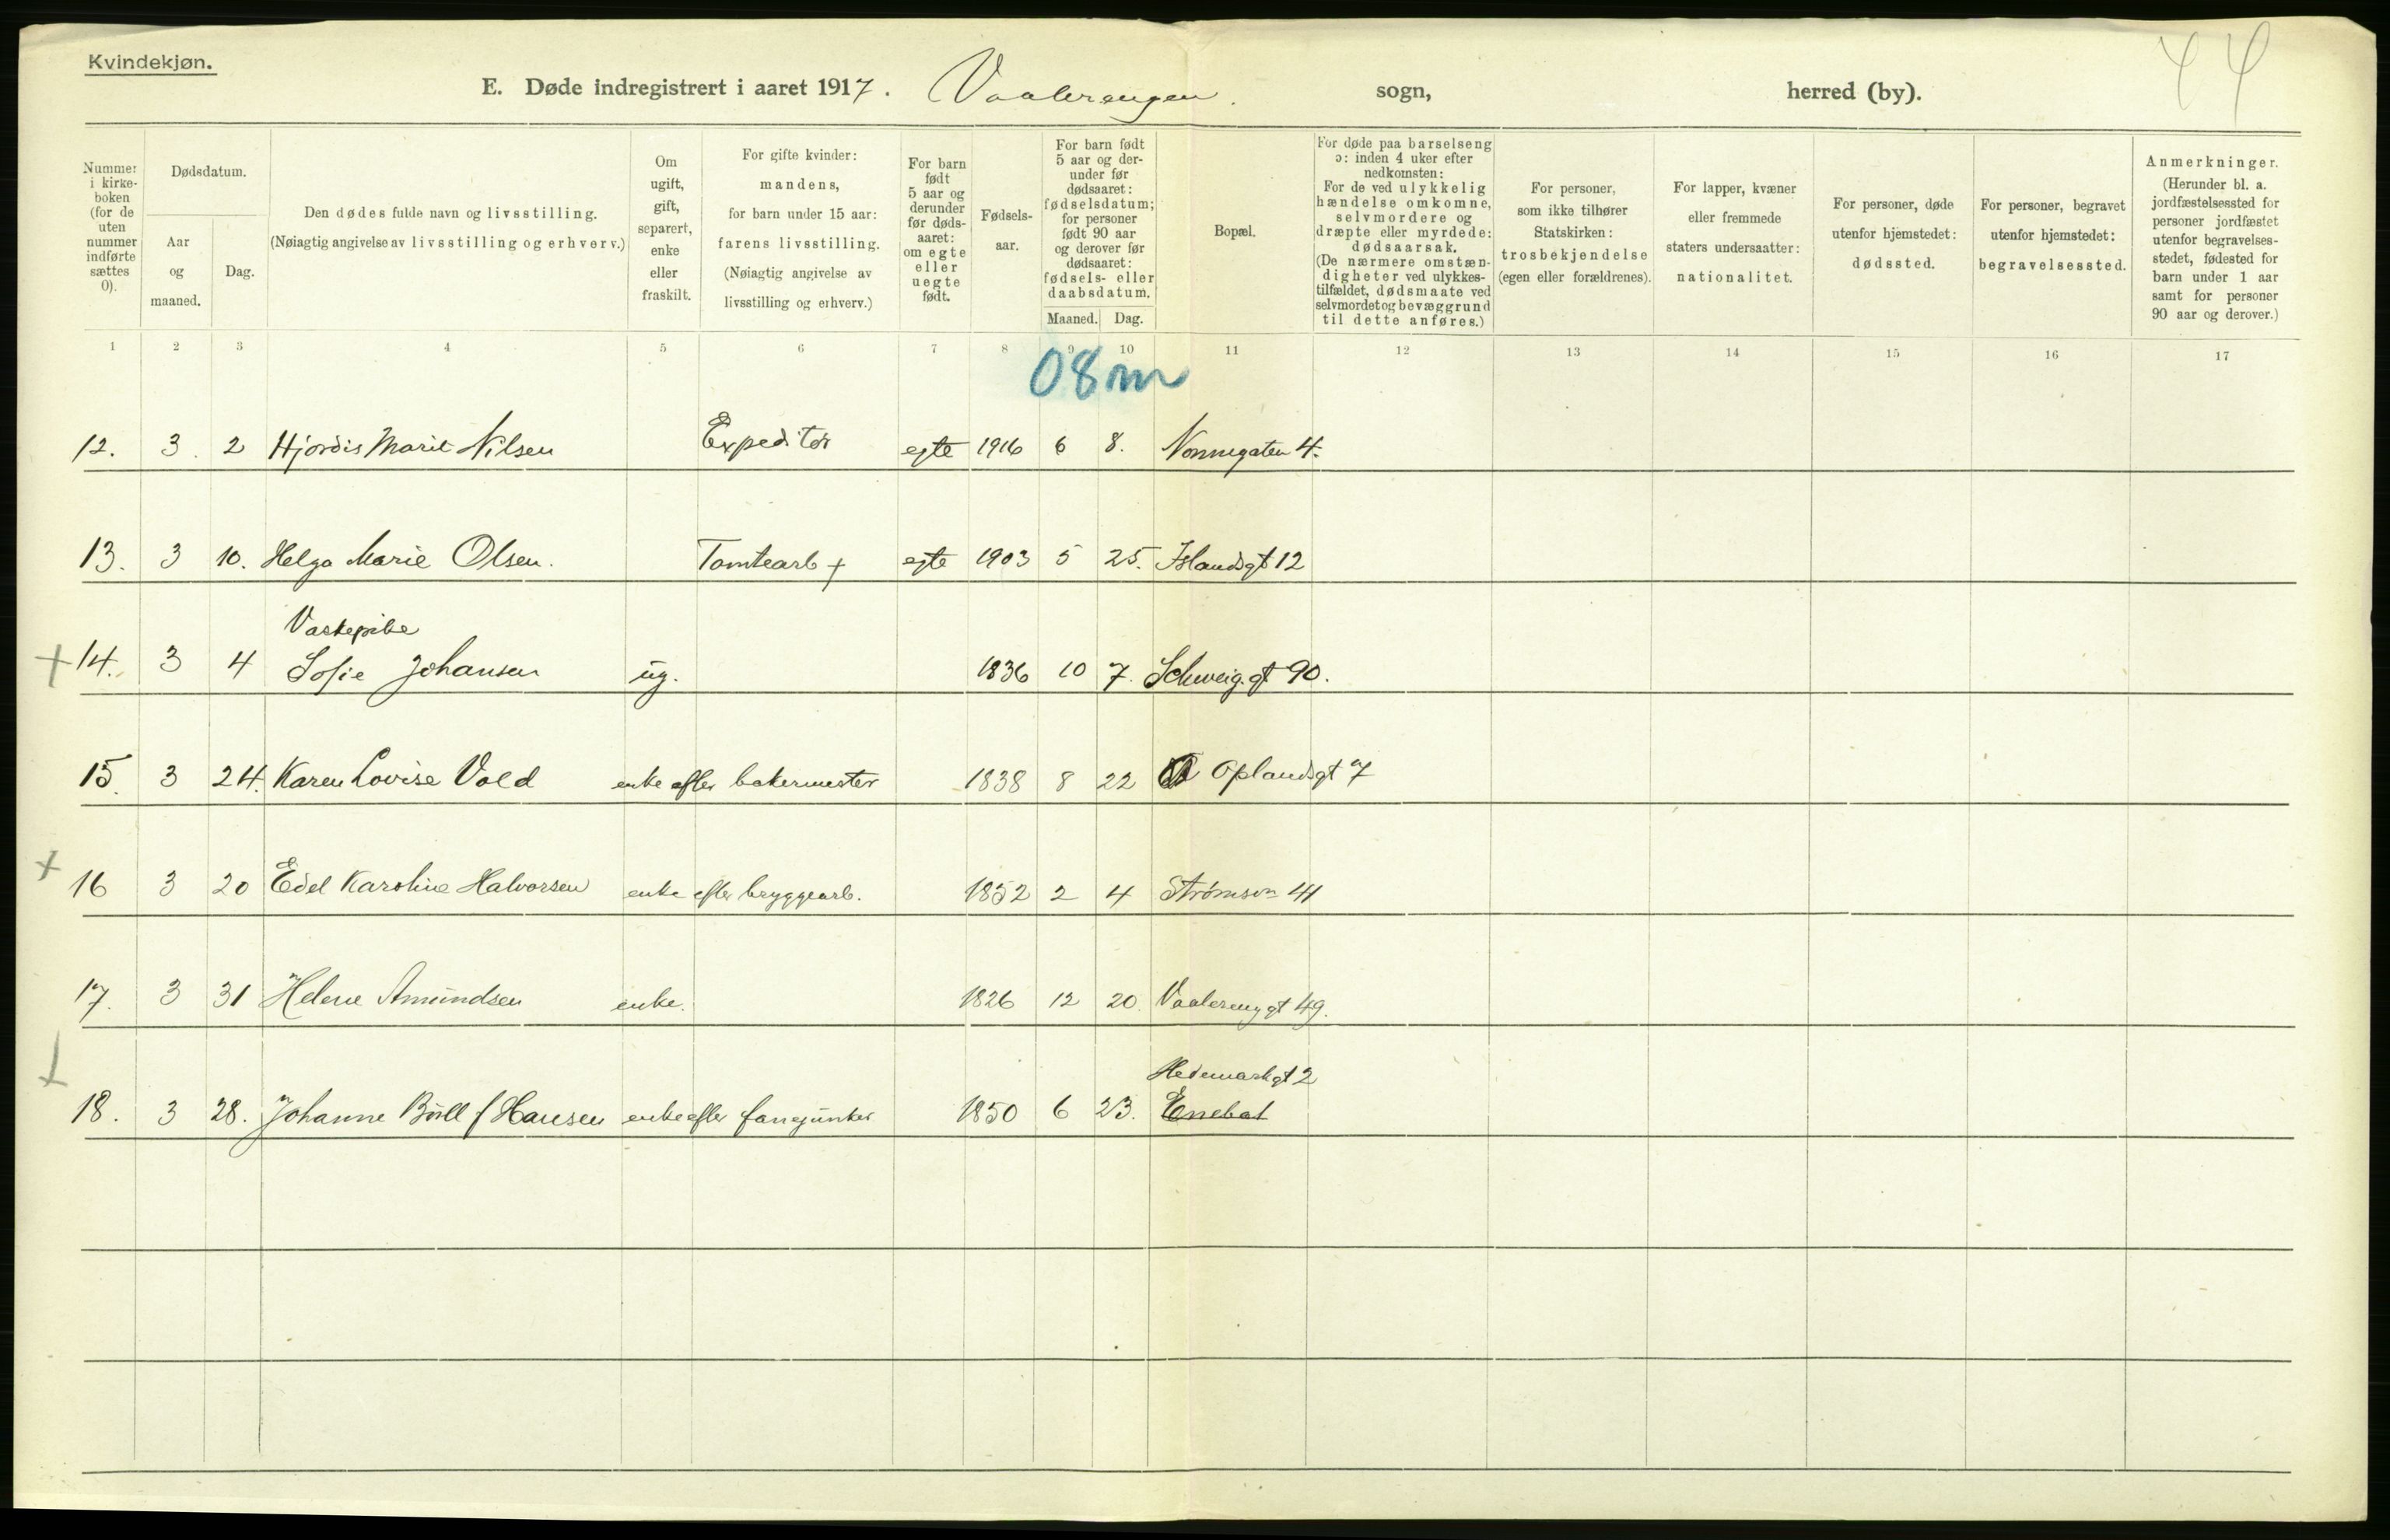 Kvindekjøn.
44
E. Døde indregistrert i aaret 1917. Vaalerengen. sogn, herred (by).
Nummer i kirke-boken (for de uten nummer indførte sættes 0).
Dødsdatum.
Aar og maaned.
Dag.
Den dødes fulde navn og livsstilling.
(Nøiagtig angivelse av livsstilling og erhverv.)
Om ugift, gift, separert, enke eller fraskilt.
For gifte kvinder: mandens, for barn under 15 aar: farens livsstilling. (Nøiagtig angivelse av livsstilling og erhverv.)
For barn født 5 aar og derunder før døds-aaret: om egte eller uegte født.
Fødsels-aar.
For barn født 5 aar og der-under før dødsaaret: fødselsdatum; for personer født 90 aar og derover før dødsaaret: fødsels- eller daabsdatum.
Maaned.
Dag.
Bopæl.
For døde paa barselseng ɔ: inden 4 uker efter nedkomsten: For de ved ulykkelig hændelse omkomne, selvmordere og dræpte eller myrdede: dødsaarsak. (De nærmere omstæn-digheter ved ulykkes-tilfældet, dødsmaate ved selvmordet og bevæggrund til dette anføres.)
For personer, som ikke tilhører Statskirken: trosbekjendelse (egen eller forældrenes).
For lapper, kvæner eller fremmede staters undersaatter: nationalitet.
For personer, døde utenfor hjemstedet: dødssted.
For personer, begravet utenfor hjemstedet: begravelsessted.
Anmerkninger. (Herunder bl. a. jordfæstelsessted for personer jordfæstet utenfor begravelses-stedet, fødested for barn under 1 aar samt for personer 90 aar og derover.)
1 2 3 4 5 6 7 8 9 10 11 12 13 14 15 16 17
08m
12. 3. 2 Hjordis Marit Nilsen Expeditør egte 1916 6 8. Nonnegaten 4.
13. 3 10. Helga Marie Olsen. Tomtearb + egte 1903 5 25. Islandsgt 12
Vaskepike
+ 14. 3 4 Sofie Johansen ug. 1836 10 7. Schweig.gt 90.
15. 3 24. Karen Lovise Vold enke efter bakermester 1838 8 22 Oplandsgt 7
+ 16 3 20 Edel Karoline Halvorsen enke efter bryggearb. 1852 2 4 Strømsvn 41
17. 3 31 Helene Amundsen enke. 1826 12 20. Vaalerenggt 49.
Hedemarkgt 2
+ 18. 3 28. Johanne Bull f Hansen enke efter fanejunker 1850 6 23. Enebak